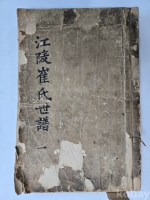 江陵崔氏世譜 一